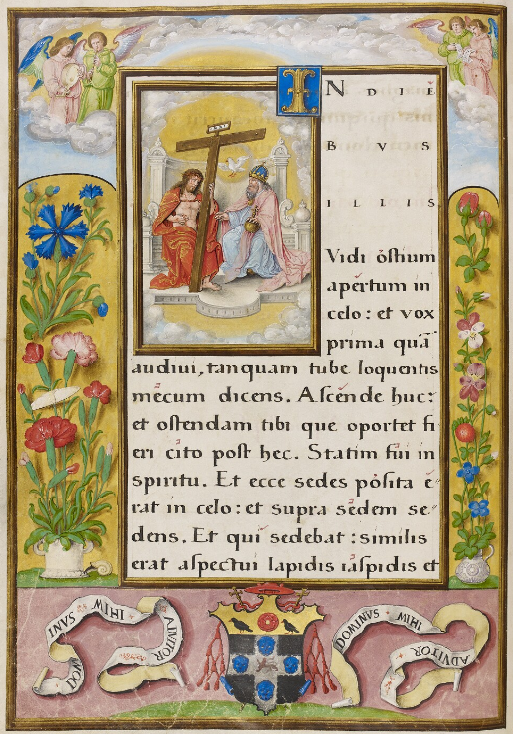 INRI
IN DIE
B V S
I L L I S
Vidi óstium
apértum in
celo: et vox
prima quā
audivi, tanquam tube loquentis
mécum dicens. Ascénde huc:
et ostendam tibi que oportet fi
eri cíto post hec. Statim fúi in
spiritu. Et ecce sedes pósita e-
rat in celo: et supra sédem se-
dens. Et qui sedebat: similis
erat aspectui lapidis iáspidis et
DOMINVS MIHI ADIVTOR
DOMINVS MIHI ADIVTOR